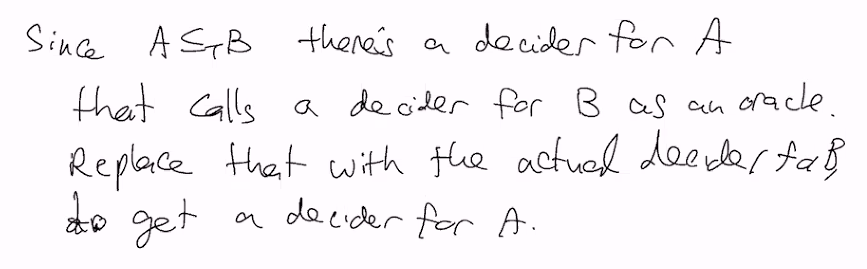 Since A ≤ₜ B there's a decider for A
that calls a decider for B as an oracle.
Replace that with the actual decider for B,
to get a decider for A.